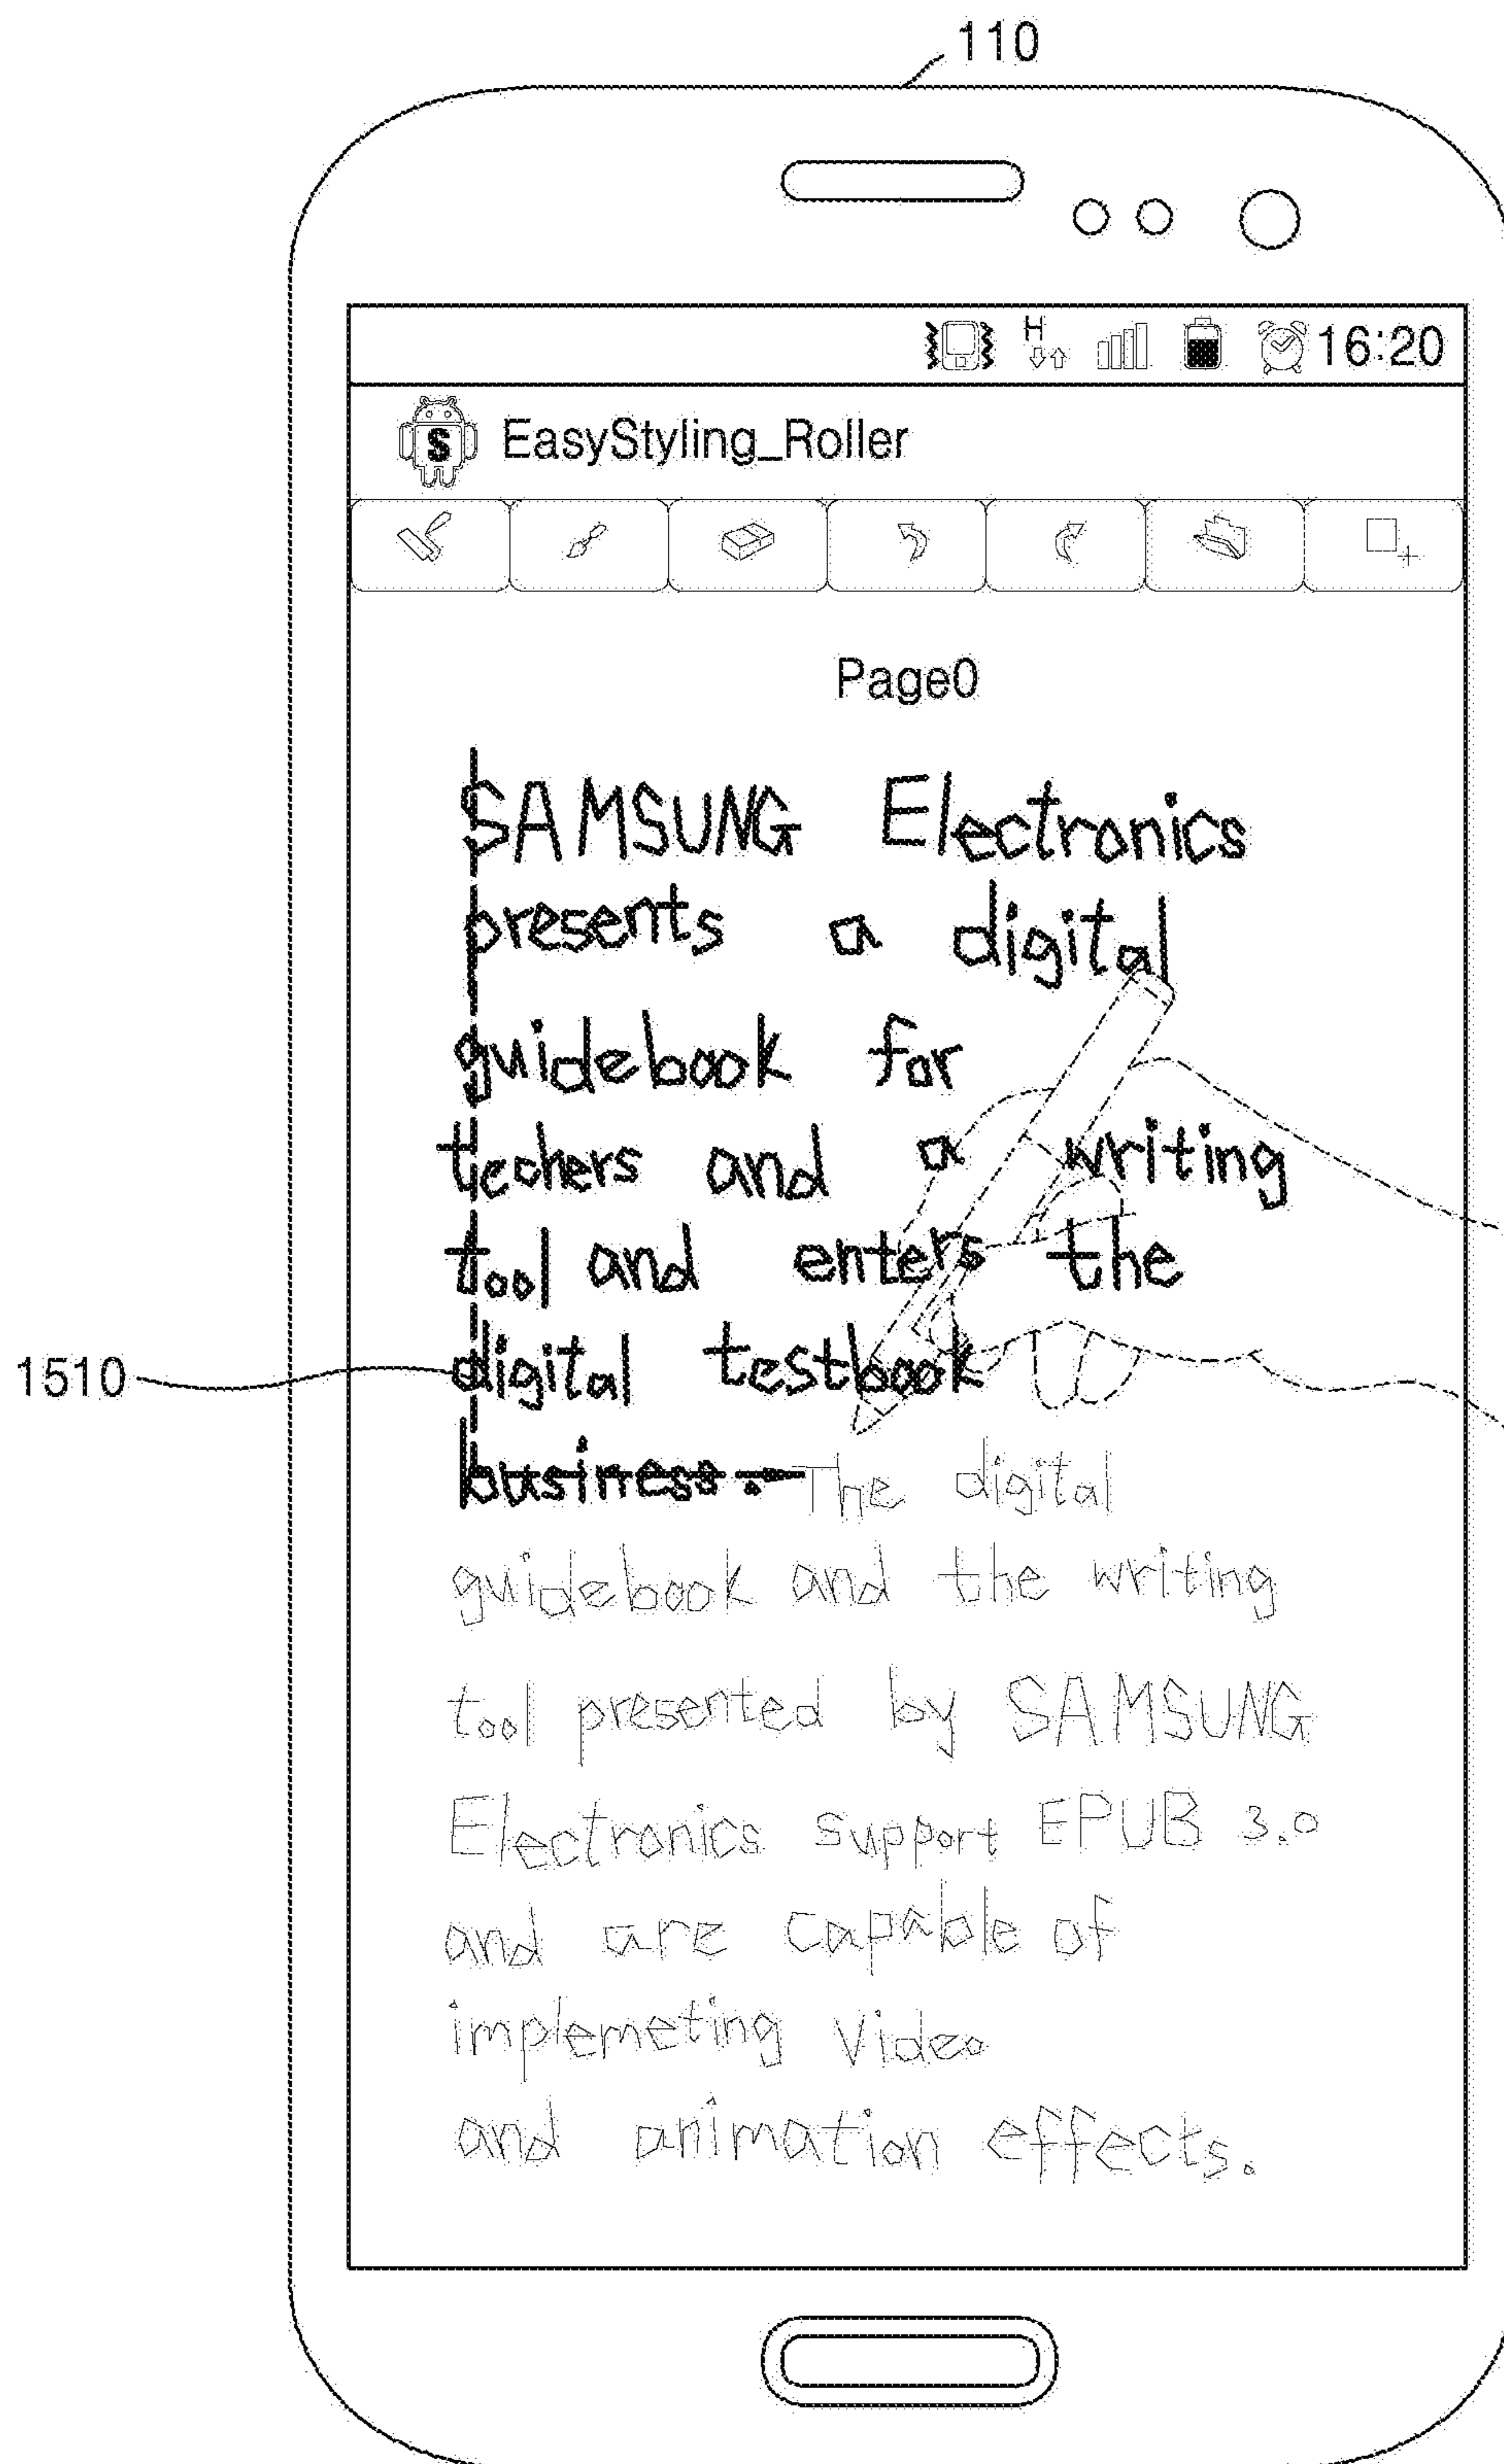 110
H 16:20
S EasyStyling_Roller
Page0
SAMSUNG Electronics
presents a digital
guidebook for
techers and a writing
tool and enters the
1510 digital testbook
business. The digital
guidebook and the writing
tool presented by SAMSUNG
Electronics support EPUB 3.0
and are capable of
implemeting Video
and animation effects.